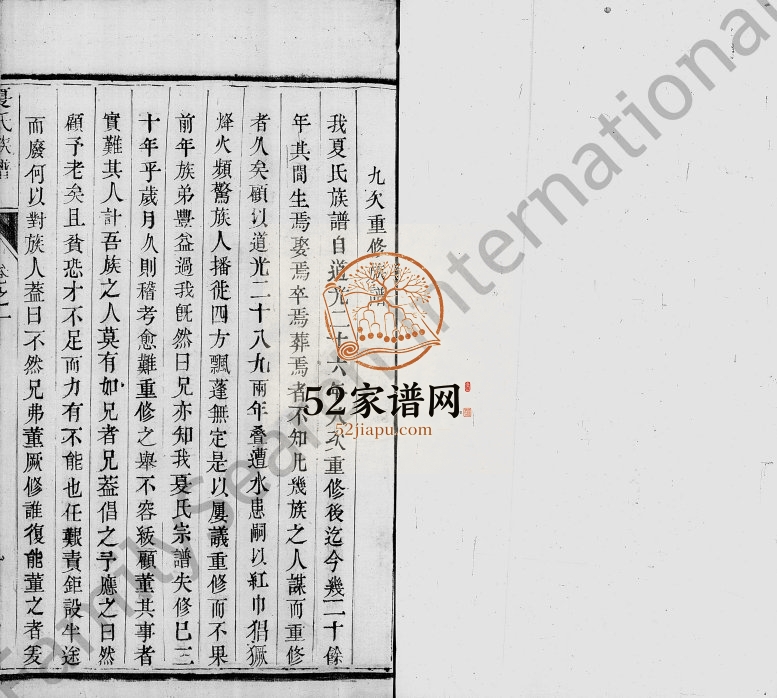 九次重修族譜
我夏氏族譜自道光二十六年 次重修後迄今幾二十餘
年其間生焉娶焉卒焉葬焉者不知凡幾族之人謀而重修
者久矣顧以道光二十八九兩年叠遭水患嗣以紅巾猖獗
烽火頻驚族人播徙四方飄蓬無定是以屢議重修而不果
前年族弟豐益過我旣然曰兄亦知我夏氏宗譜失修已三
十年乎歲月久則稽考愈難重修之舉不容緩顧董其事者
實難其人計吾族之人莫有如兄者兄葢倡之予應之曰然
顧予老矣且貧恐才不足而力有不能也任艱責鉅設半途
而廢何以對族人葢曰不然兄弗董厥修誰復能董之者爰
夏氏族譜
卷之一
52家谱网
52jiapu.com
FamilySearch International